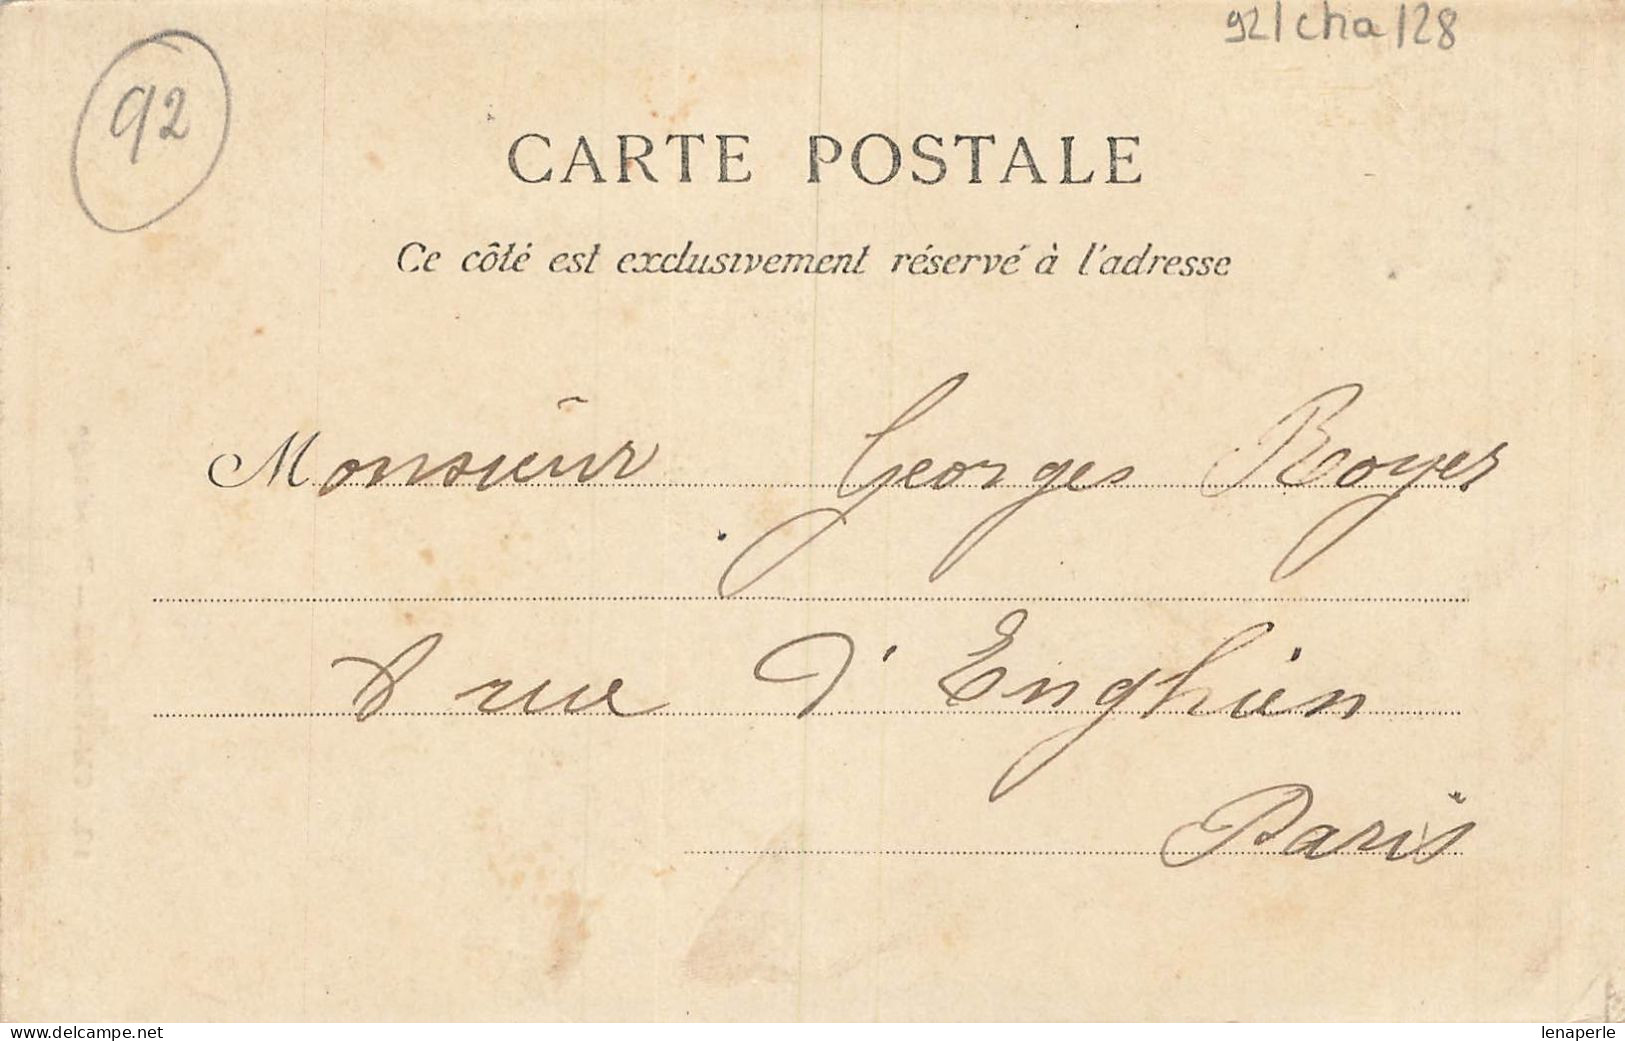 92/cha/28
92
CARTE POSTALE
Ce côté est exclusivement réservé à l'adresse
Monsieur Georges Royer
8 rue d'Enghien
Paris
www.delcampe.net
lenaperle